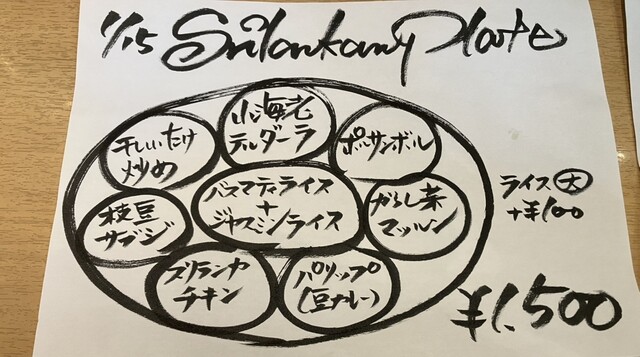 1/15 Srilankan Plate
小海老
テルダーラ
干しいたけ
炒め
ポルサンボル
バスマティライス
+
ジャスミンライス
枝豆
サブジ
からし菜
マッルン
スリランカ
チキン
パリップ
(豆カレー)
ライス大
+¥100
¥1,500